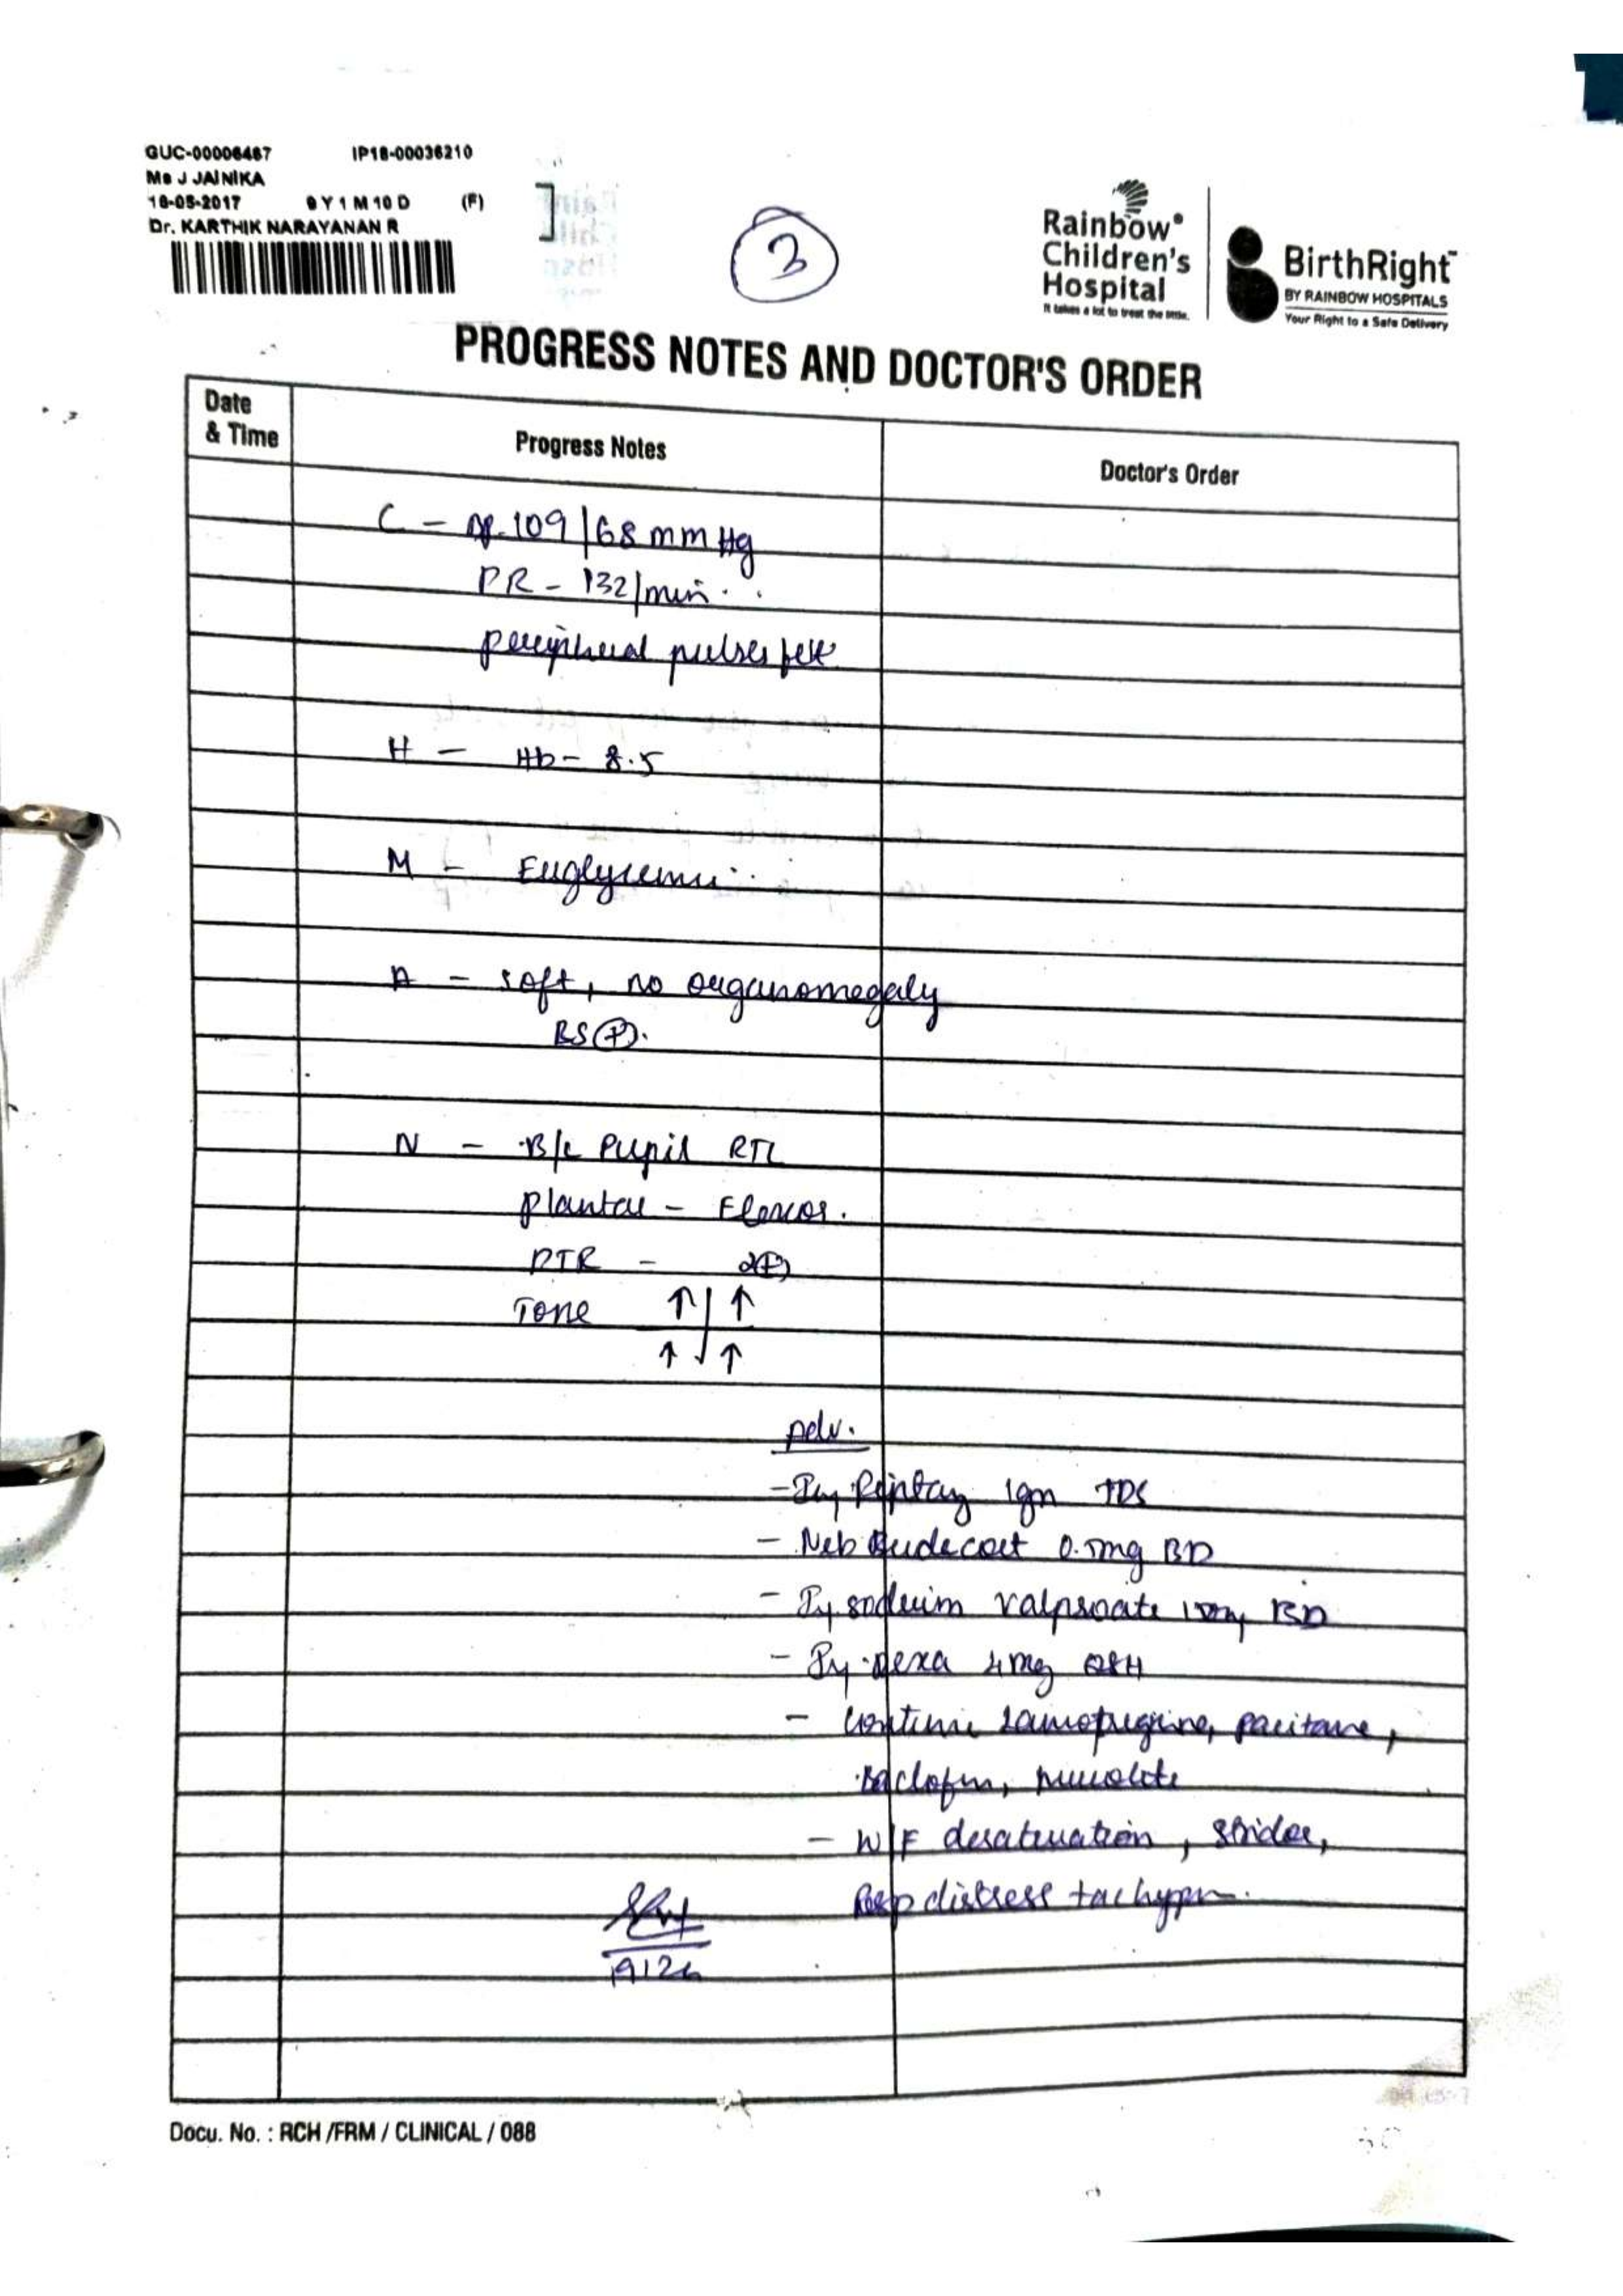 GUC-00006467 IP18-00036210
Ms J JAINIKA
18-05-2017 9 Y 1 M 10 D (F)
Dr. KARTHIK NARAYANAN R
3
Rainbow
Children's
Hospital
It takes a lot to treat the little.
BirthRight
BY RAINBOW HOSPITALS
Your Right to a Safe Delivery
PROGRESS NOTES AND DOCTOR'S ORDER
Date
& Time
Progress Notes
Doctor's Order
C - BP. 109/68 mm Hg
PR - 132/min
peripheral pulses felt
H - Hb - 8.5
M - Euglycemic
A - soft, no organomegaly
BS (+).
N - B/L Pupil RTL
plantar - Flexor.
DTR - 2(+)
Tone ↑ | ↑
↑ | ↑
Adv.
- Inj Piptaz 1gm TDS
- Neb Budecort 0.5mg BD
- Inj sodium valproate BD
- Inj. Dexa 4mg Q8H
- continue Lamotrigine, pacitane,
Baclofen,
- W/F desaturation, stridor,
Resp distress
Docu. No. : RCH /FRM / CLINICAL / 088